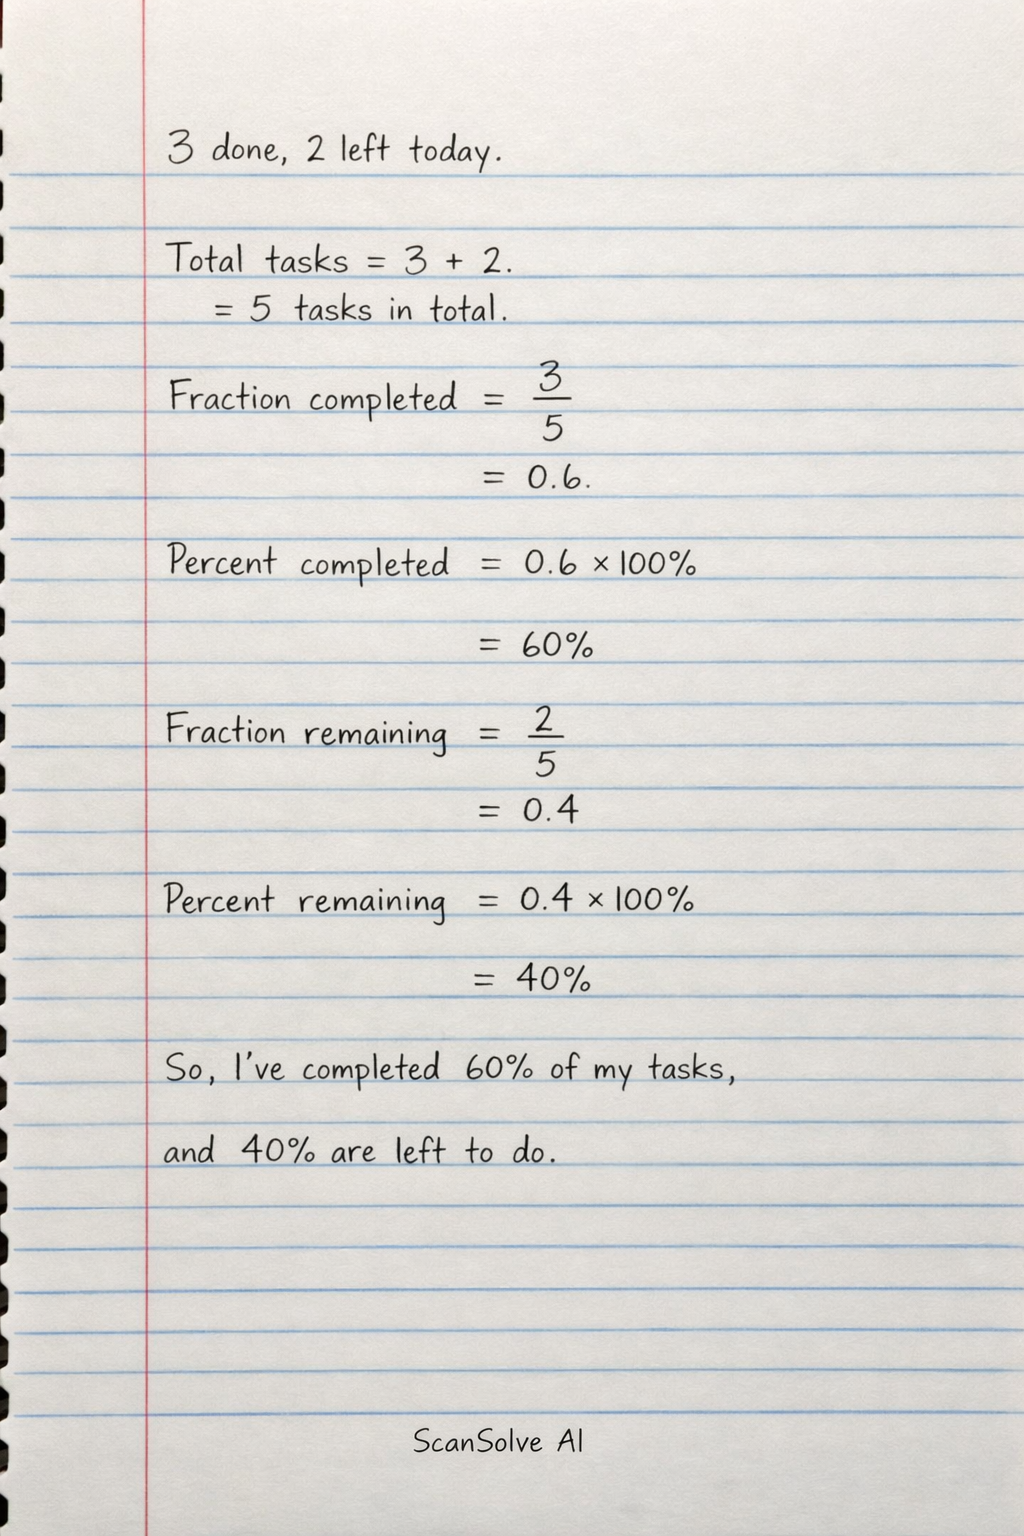 3 done, 2 left today.
Total tasks = 3 + 2.
= 5 tasks in total.
Fraction completed = 3/5
= 0.6.
Percent completed = 0.6 × 100%
= 60%
Fraction remaining = 2/5
= 0.4
Percent remaining = 0.4 × 100%
= 40%
So, I've completed 60% of my tasks,
and 40% are left to do.
ScanSolve AI